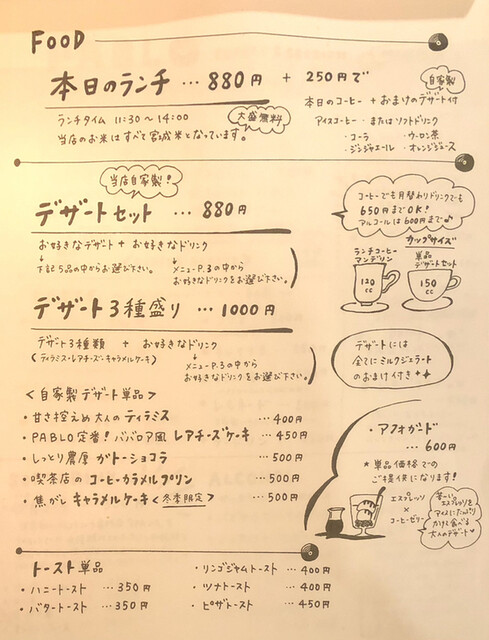 FOOD
本日のランチ … 880円 + 250円で
自家製
本日のコーヒー + おまけのデザート付
ランチタイム 11:30〜14:00
大盛無料
アイスコーヒー・またはソフトドリンク
当店のお米はすべて宮城米となっています。
・コーラ ・ウーロン茶
・ジンジャエール ・オレンジジュース
当店自家製!
デザートセット … 880円
お好きなデザート + お好きなドリンク
↓ ↓
下記5品の中からお選び下さい。
メニューP.3の中から
お好きなドリンクをお選び下さい。
コーヒーでも月替わりドリンクでも
650円までOK!
アルコールは600円まで♪
カップサイズ
ランチコーヒー
マンデリン
単品
デザートセット
120
cc
150
cc
デザート3種盛り … 1000円
デザート3種類 + お好きなドリンク
(ティラミス・レアチーズ・キャラメルケーキ)
↘
メニューP.3の中から
お好きなドリンクをお選び下さい。
デザートには
全てにミルクジェラート
のおまけ付き
<自家製デザート単品>
・甘さ控えめ大人のティラミス — 400円
・PABLO定番!ババロア風レアチーズケーキ — 450円
・しっとり濃厚ガトーショコラ — 500円
・喫茶店のコーヒーカラメルプリン — 500円
・焦がしキャラメルケーキ<冬季限定> — 500円
・アフォガード
… 600円
★単品価格での
ご提供になります!
エスプレッソ
×
コーヒーゼリー
エスプレッソを
アイスにたっぷり
かけて食べる
大人のデザート
トースト単品
・ハニートースト … 350円
・バタートースト … 350円
・リンゴジャムトースト … 400円
・ツナトースト … 400円
・ピザトースト … 450円